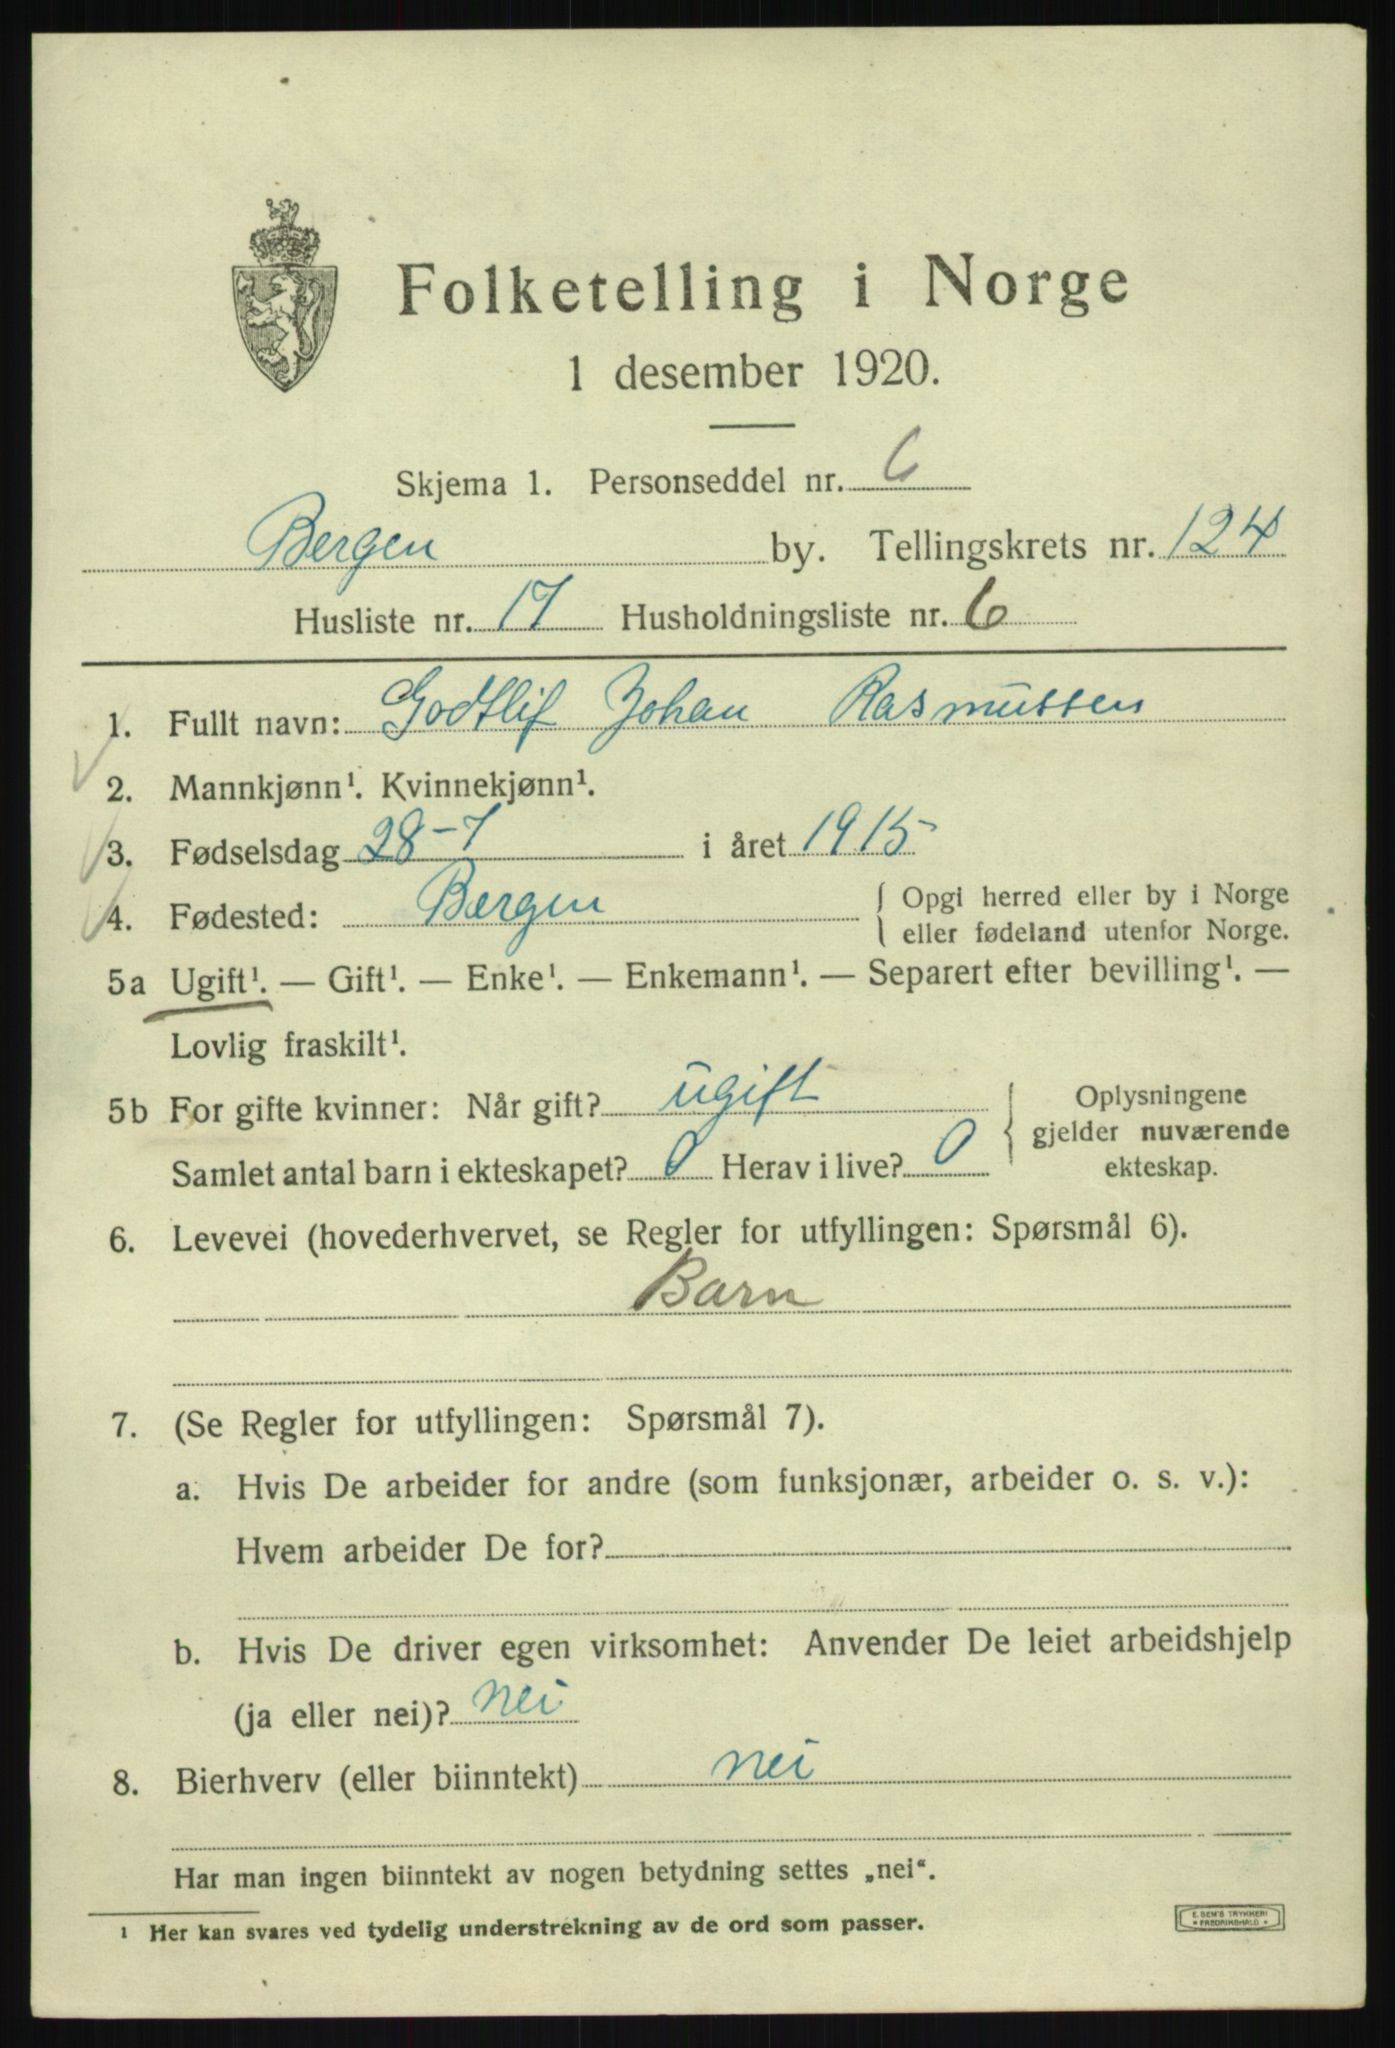 Folketelling i Norge
1 desember 1920.
Skjema 1. Personseddel nr. 6
Bergen by. Tellingskrets nr. 124
Husliste nr. 17 Husholdningsliste nr. 6
1. Fullt navn: Godtlif Johan Rasmussen
2. Mannkjønn¹. Kvinnekjønn¹.
3. Fødselsdag 28-7 i året 1915
4. Fødested: Bergen { Opgi herred eller by i Norge
eller fødeland utenfor Norge.
5a Ugift¹. — Gift¹. — Enke¹. — Enkemann¹. — Separert efter bevilling¹. —
Lovlig fraskilt¹.
5b For gifte kvinner: Når gift? ugift } Oplysningene
gjelder nuværende
Samlet antal barn i ekteskapet? 0 Herav i live? 0 ekteskap.
6. Levevei (hovederhvervet, se Regler for utfyllingen: Spørsmål 6).
Barn
7. (Se Regler for utfyllingen: Spørsmål 7).
a. Hvis De arbeider for andre (som funksjonær, arbeider o. s. v.):
Hvem arbeider De for?
b. Hvis De driver egen virksomhet: Anvender De leiet arbeidshjelp
(ja eller nei)? nei
8. Bierhverv (eller biinntekt) nei
Har man ingen biinntekt av nogen betydning settes „nei“.
¹ Her kan svares ved tydelig understrekning av de ord som passer.
E. SEM'S TRYKKERI
FREDRIKSHALD